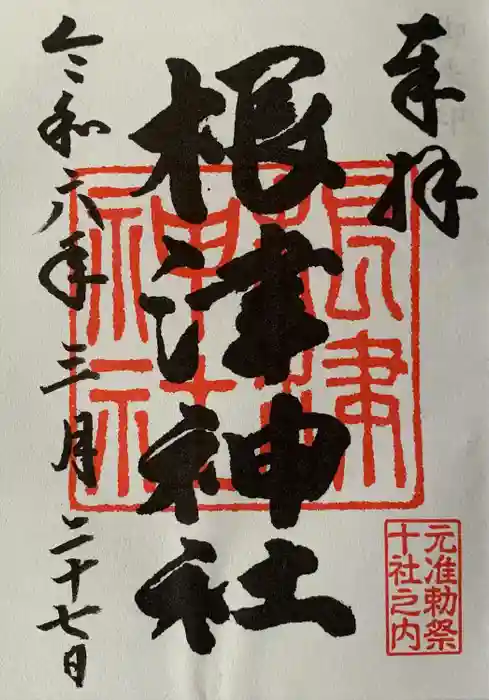 奉拝
根津神社
令和六年三月二十七日
根津神社
元准勅祭
十社之内